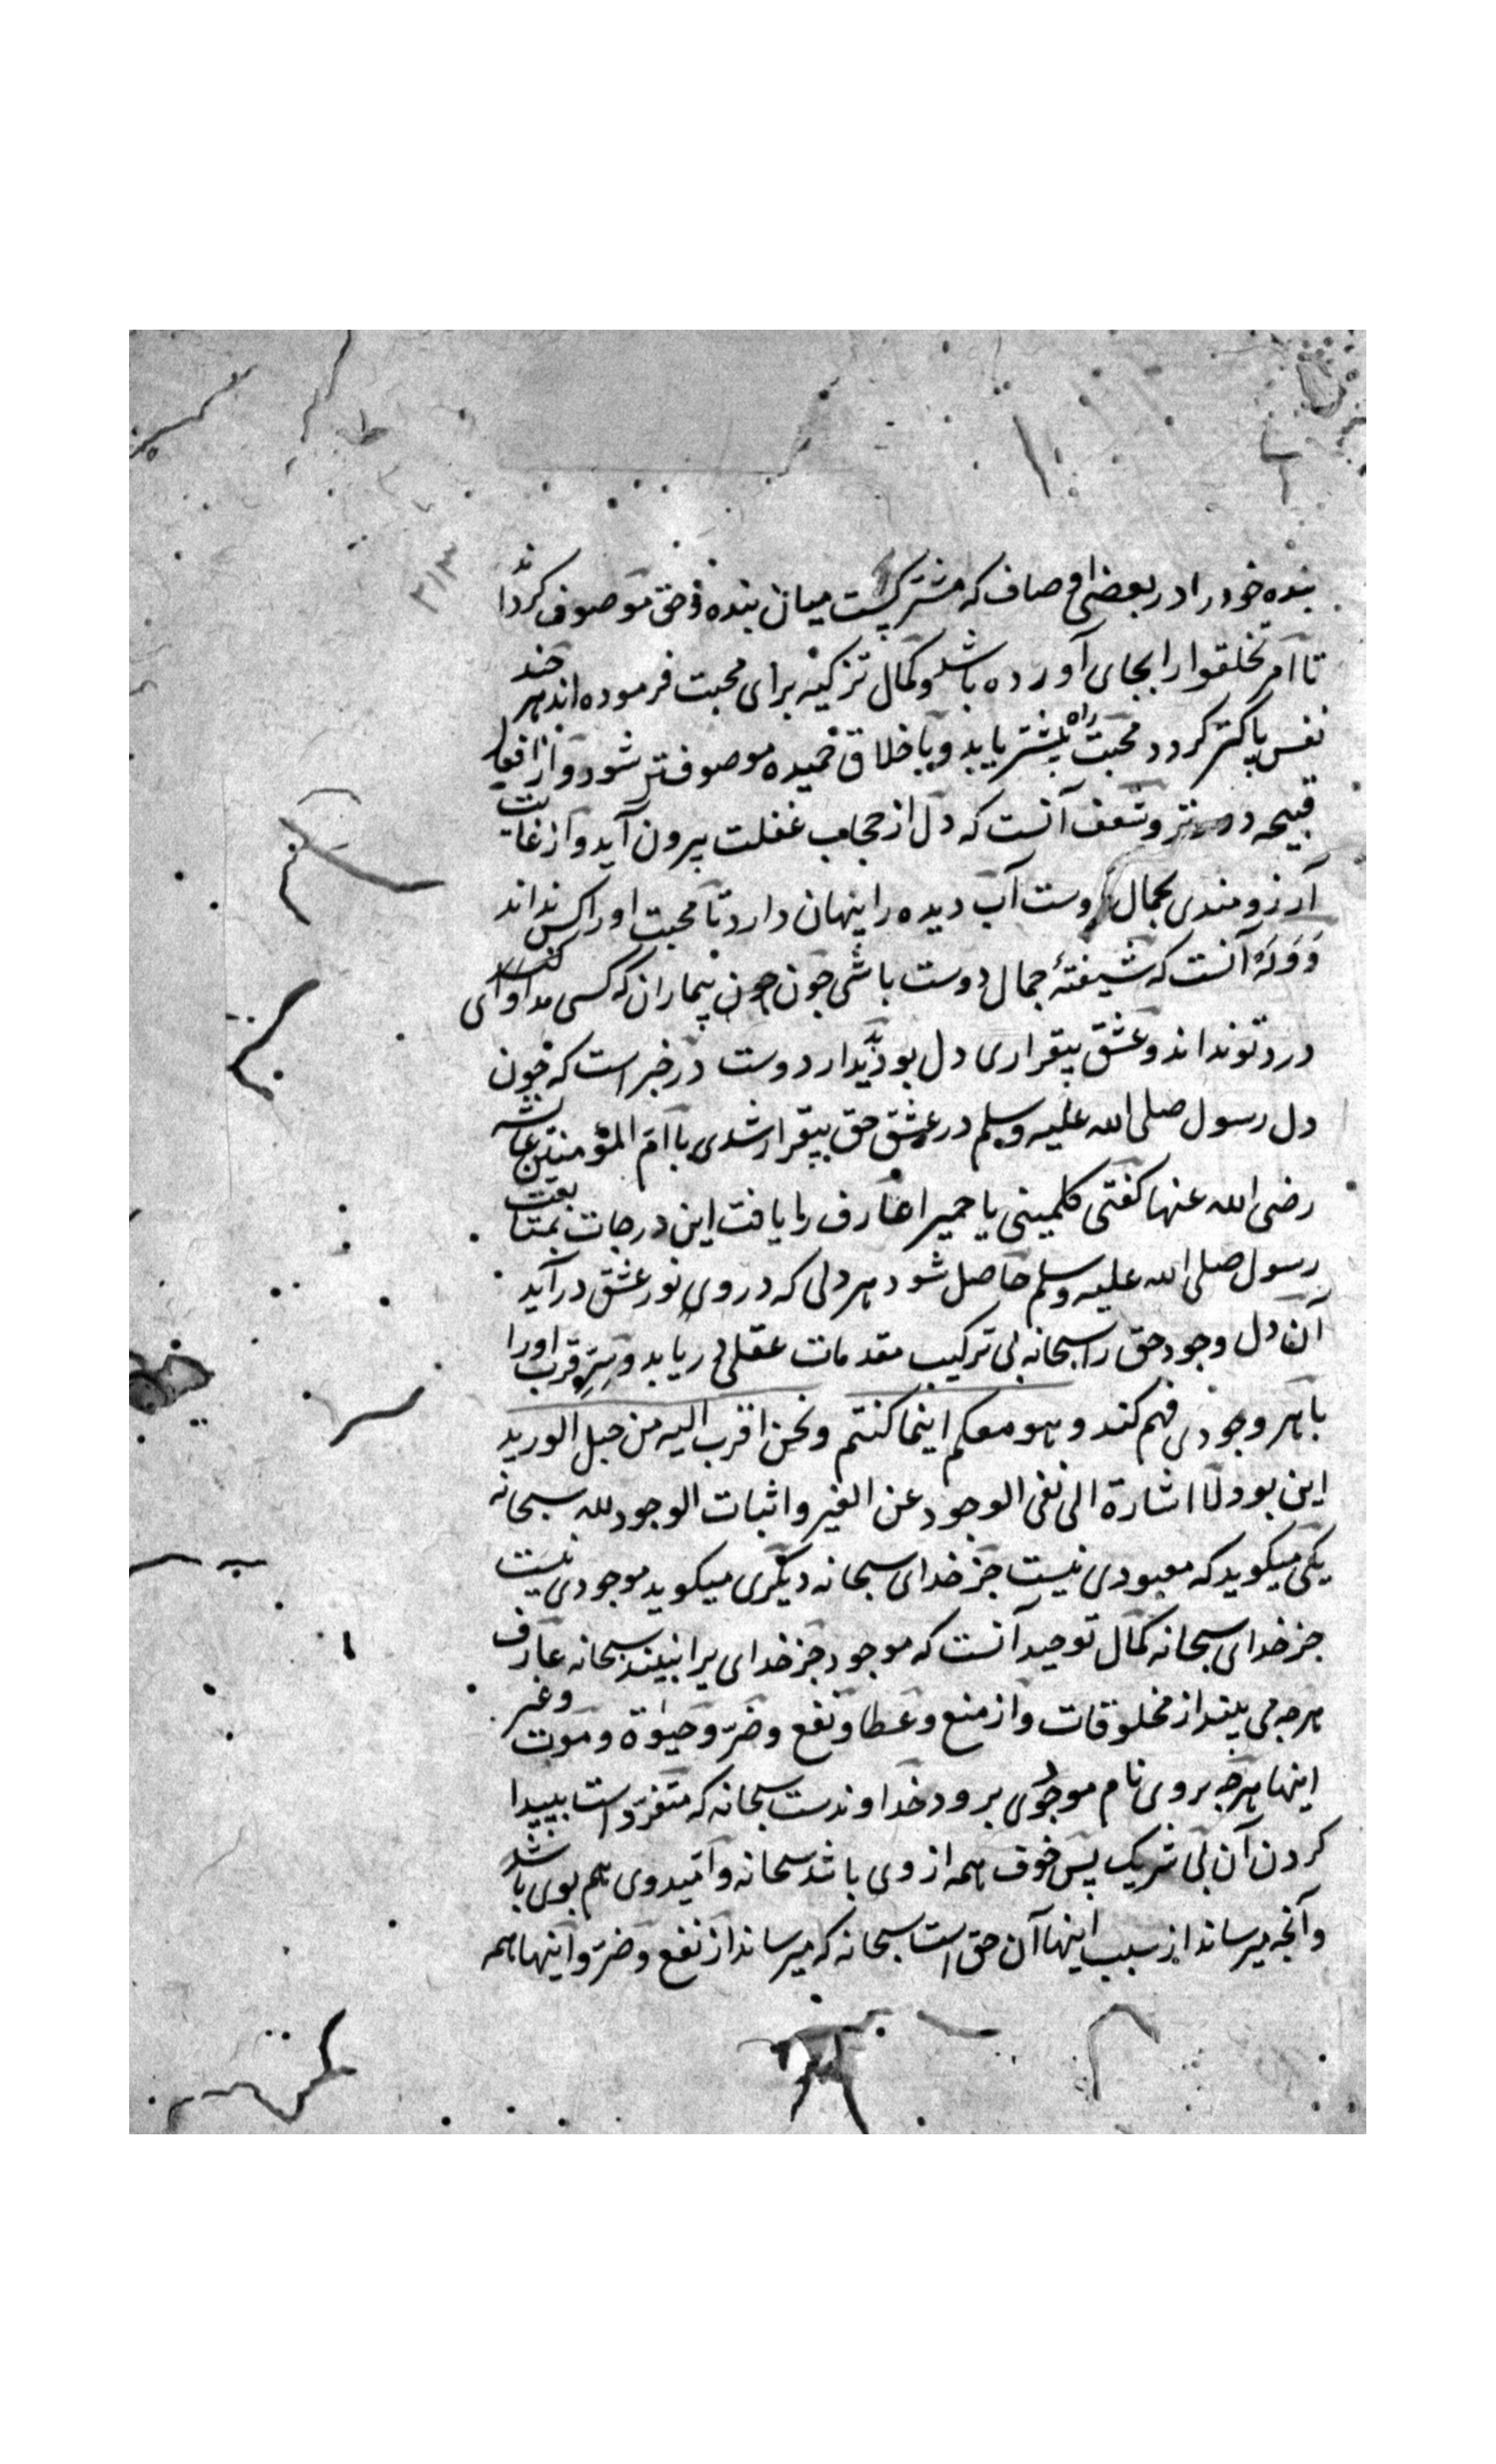 ۳۱۳
بنده خود را در بعضی اوصاف که مشترکست میان بنده و حق موصوف کرداند
تا امر تخلقوا را بجای آورده باشد و کمال تزکیه برای محبت فرموده اند هر چند
نفس پاکتر کردد محبت راه بیشتر یابد و باخلاق حمیده موصوف تر شود و از افعال
قبیحه دورتر و شعف آنست که دل از حجاب غفلت بیرون آید و از غایت
آرزومندی بجمال دوست آب دیده را پنهان دارد تا محبت او را کس نداند
و وله آنست که شیفتۀ جمال دوست باشی چون بیماران که کسی مداوای
درد تو نداند و عشق بیقراری دل بود بدیدار دوست در خبر است که چون
دل رسول صلی الله علیه وسلم در عشق حق بیقرار شدی با ام المؤمنین عایشه
رضی الله عنها کفتی کلمینی یا حمیرا عارف را یافت این درجات بمتابعت
رسول صلی الله علیه وسلم حاصل شود هر دلی که در وی نور عشق درآید
آن دل وجود حق را سبحانه بی ترکیب مقدمات عقلی دریابد و سر قرب او را
با هر وجودی فهم کند و هو معکم اینما کنتم و نحن اقرب الیه من حبل الورید
این بود لا اشارة الی نفی الوجود عن الغیر و اثبات الوجود لله سبحانه
یکی میکوید که معبودی نیست جز خدای سبحانه دیگری میکوید موجودی نیست
جز خدای سبحانه کمال توحید آنست که موجود جز خدای یرا نبیند سبحانه عارف
هرچه می بیند از مخلوقات و از منع و عطا و نفع و ضرّ و حیوة و موت و غیر
اینها هرچه بروی نام موجودی برود خداوندست سبحانه که متفرّد است بپیدا
کردن آن بی شریک پس خوف همه از وی باشد سبحانه و امید وی هم بوی باشد
و آنچه میرساند از سبب اینها آن حق است سبحانه که میرساند از نفع و ضرّ و اینها همه